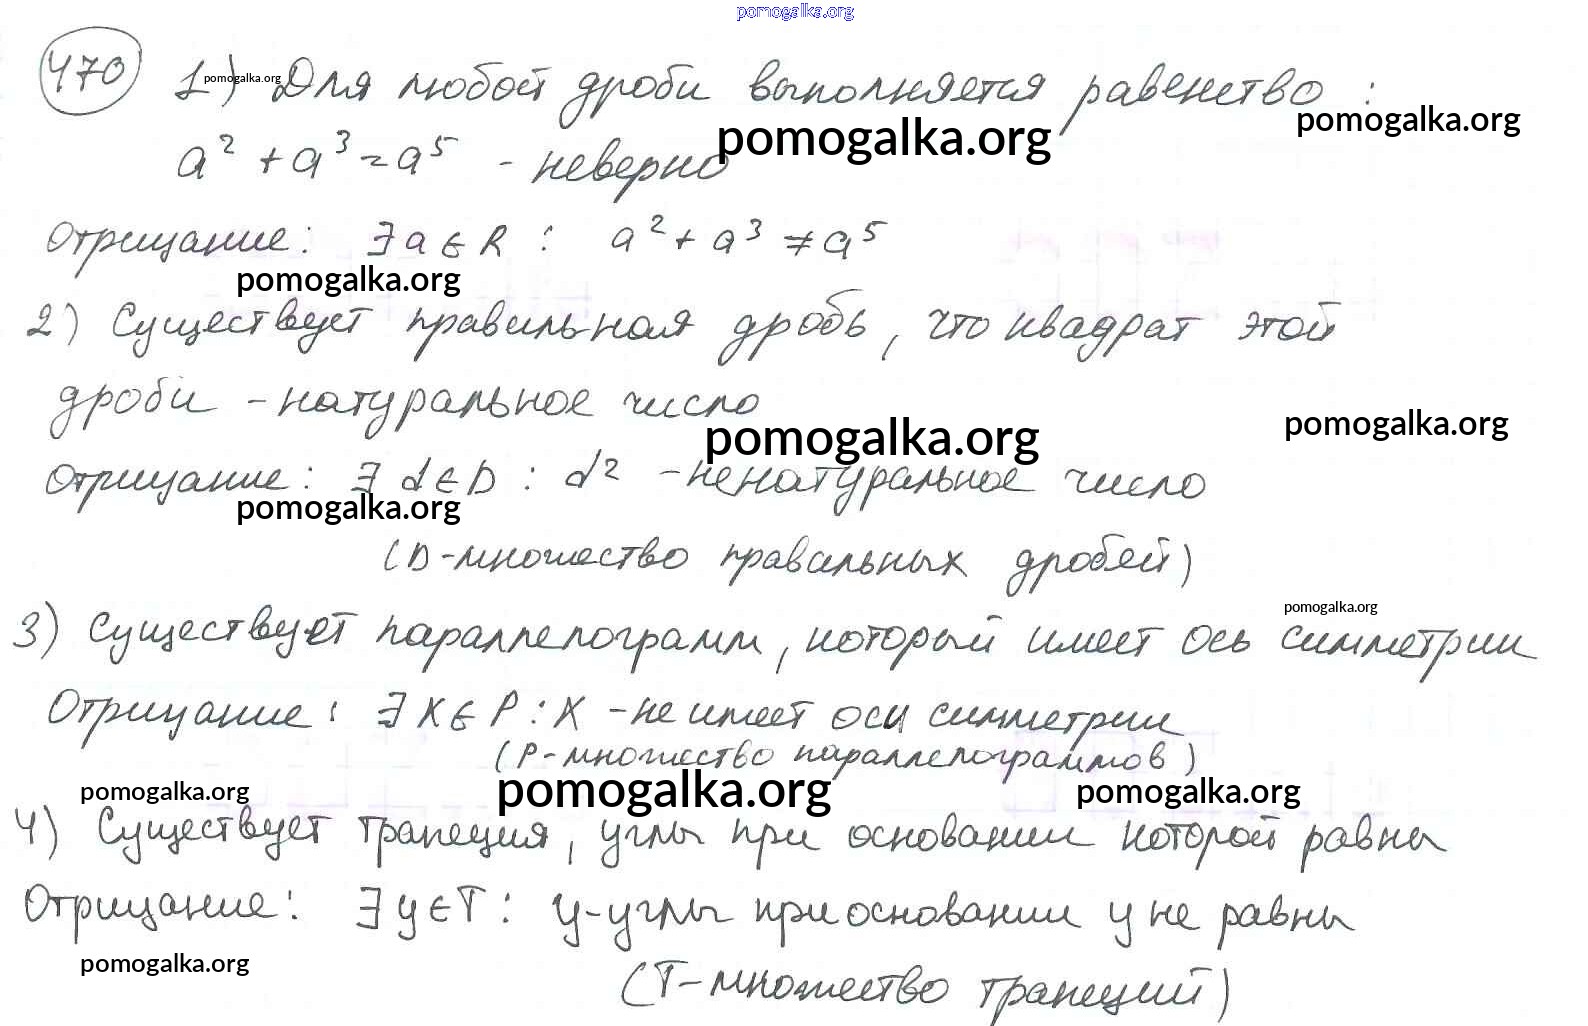 pomogalka.org
470 1) pomogalka.org Для любой дроби выполняется равенство :
pomogalka.org pomogalka.org
a² + a³ = a⁵ - неверно
Отрицание: ∃ a ∈ R : a² + a³ ≠ a⁵
pomogalka.org
2) Существует правильная дробь, что квадрат этой
дроби - натуральное число
pomogalka.org pomogalka.org
Отрицание: ∃ d ∈ D : d² - ненатуральное число
pomogalka.org
(D - множество правильных дробей)
pomogalka.org
3) Существует параллелограмм, который имеет ось симметрии
Отрицание: ∃ X ∈ P : X - не имеет оси симметрии
(P - множество параллелограммов)
pomogalka.org pomogalka.org pomogalka.org
4) Существует трапеция, углы при основании которой равны
Отрицание: ∃ y ∈ T : y - углы при основании y не равны
pomogalka.org
(T - множество трапеций)